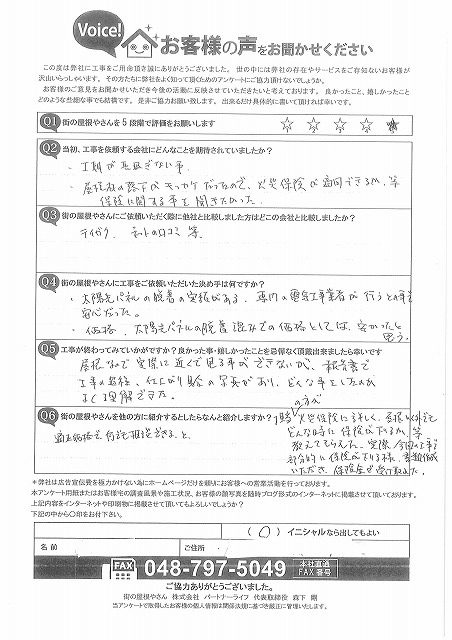 Voice!
お客様の声をお聞かせください
この度は弊社に工事をご用命頂き誠にありがとうございました。世の中には弊社の存在やサービスをご存知ないお客様が
沢山いらっしゃいます。その方たちに弊社をよく知って頂くためのアンケートにご協力頂けないでしょうか。
お客様のご意見をお聞かせいただき今後の活動に反映させていただきたいと考えております。良かったこと、嬉しかったこと
どのような些細な事でも結構です。是非ご協力お願い致します。出来るだけ具体的に書いて頂ければ幸いです。
Q1 街の屋根やさんを5段階で評価をお願いします
☆ ☆ ☆ ☆ ★
Q2 当初、工事を依頼する会社にどんなことを期待されていましたか?
・工期が長過ぎない事
・屋根材の落下がキッカケだったので、火災保険が適用できるか、等
保険に関する事を聞きたかった。
Q3 街の屋根やさんにご依頼いただく際に他社と比較しました方はどこの会社と比較しましたか?
テイガク ネットの口コミ 等
Q4 街の屋根やさんに工事をご依頼いただいた決め手は何ですか?
・太陽光パネルの脱着の実績がある、専門の電気工事業者が行うとの事で
安心だった。
・価格、太陽光パネルの脱着込みでの価格としては、安かったと
思う。
Q5 工事が終わってみていかがですか?良かった事・嬉しかったことを忌憚なく頂戴出来ましたら幸いです
屋根なので実際に近くで見る事ができないが、報告書で
工事の過程、仕上がり時の写真があり、どんな事をしたのか
よく理解できた。
Q6 街の屋根やさんを他の方に紹介するとしたらなんと紹介しますか?
適正価格で何でも相談できること。
の方が
火災保険に詳しく、屋根以外でも
どんな時に保険が下りるか、等
教えてもらえた。実際、今回の工事で
部分的に保険が下りる様、書類作成
いただき、保険金を受け取れた。
＊弊社は広告宣伝費を極力かけない為にホームページだけを頼りにお客様への営業活動を行っております。
本アンケート用紙またはお客様宅の調査風景や施工状況、お客様の顔写真を随時ブログ形式のインターネットに掲載させて頂いております。
上記内容をインターネットや印刷物に掲載させて頂いてもよろしいでしょうか?
下記の中から〇印をお付下さい。
(○) イニシャルなら出してもよい
名前 ご住所
FAX 048-797-5049 本社直通 FAX番号
ご協力ありがとうございました。
街の屋根やさん 株式会社 パートナーライフ 代表取締役 森下 剛
当アンケートで取得したお客様の個人情報は関係法規に基づき厳正に管理いたします。